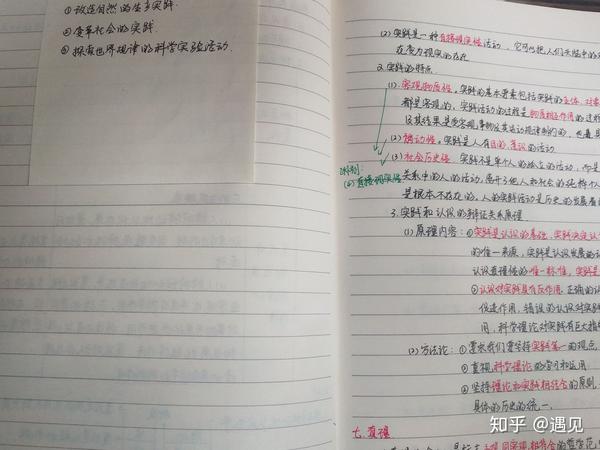 ①改造自然的生产实践.
②变革社会的实践.
③探索世界规律的科学实验活动.
(2) 实践是一种直接现实性活动, 它可以把人们头脑中的
存在变为现实的存在
2. 实践的特点
(1). 客观物质性. 实践的基本要素包括实践的主体、对象
都是客观的, 实践活动的过程是物质相互作用的过程
及其结果是受客观事物及其运动规律制约的, 也是
(2) 能动性. 实践是人有目的、意识的活动
(3) 社会历史性. 实践不是单个人的孤立的活动, 而是
[区别]
(4) 直接现实性
关系中的人的活动, 离开了他人和社会的纯粹个人
是根本不存在的. 人的实践活动是历史的发展着
3. 实践和认识的辩证关系原理
(1) 原理内容: ①实践是认识的基础, 实践决定认
的唯一来源, 实践是认识发展的动
认识真理性的唯一标准, 实践是
②认识对实践具有反作用. 正确的认
促进作用, 错误的认识对实践
用, 科学理论对实践有巨大指
(2) 方法论: ①要求我们要坚持实践第一的观点,
②重视科学理论的学习和运用
③坚持理论和实践相结合的原则
具体的历史的统一.
七. 真理
知乎 @遇见